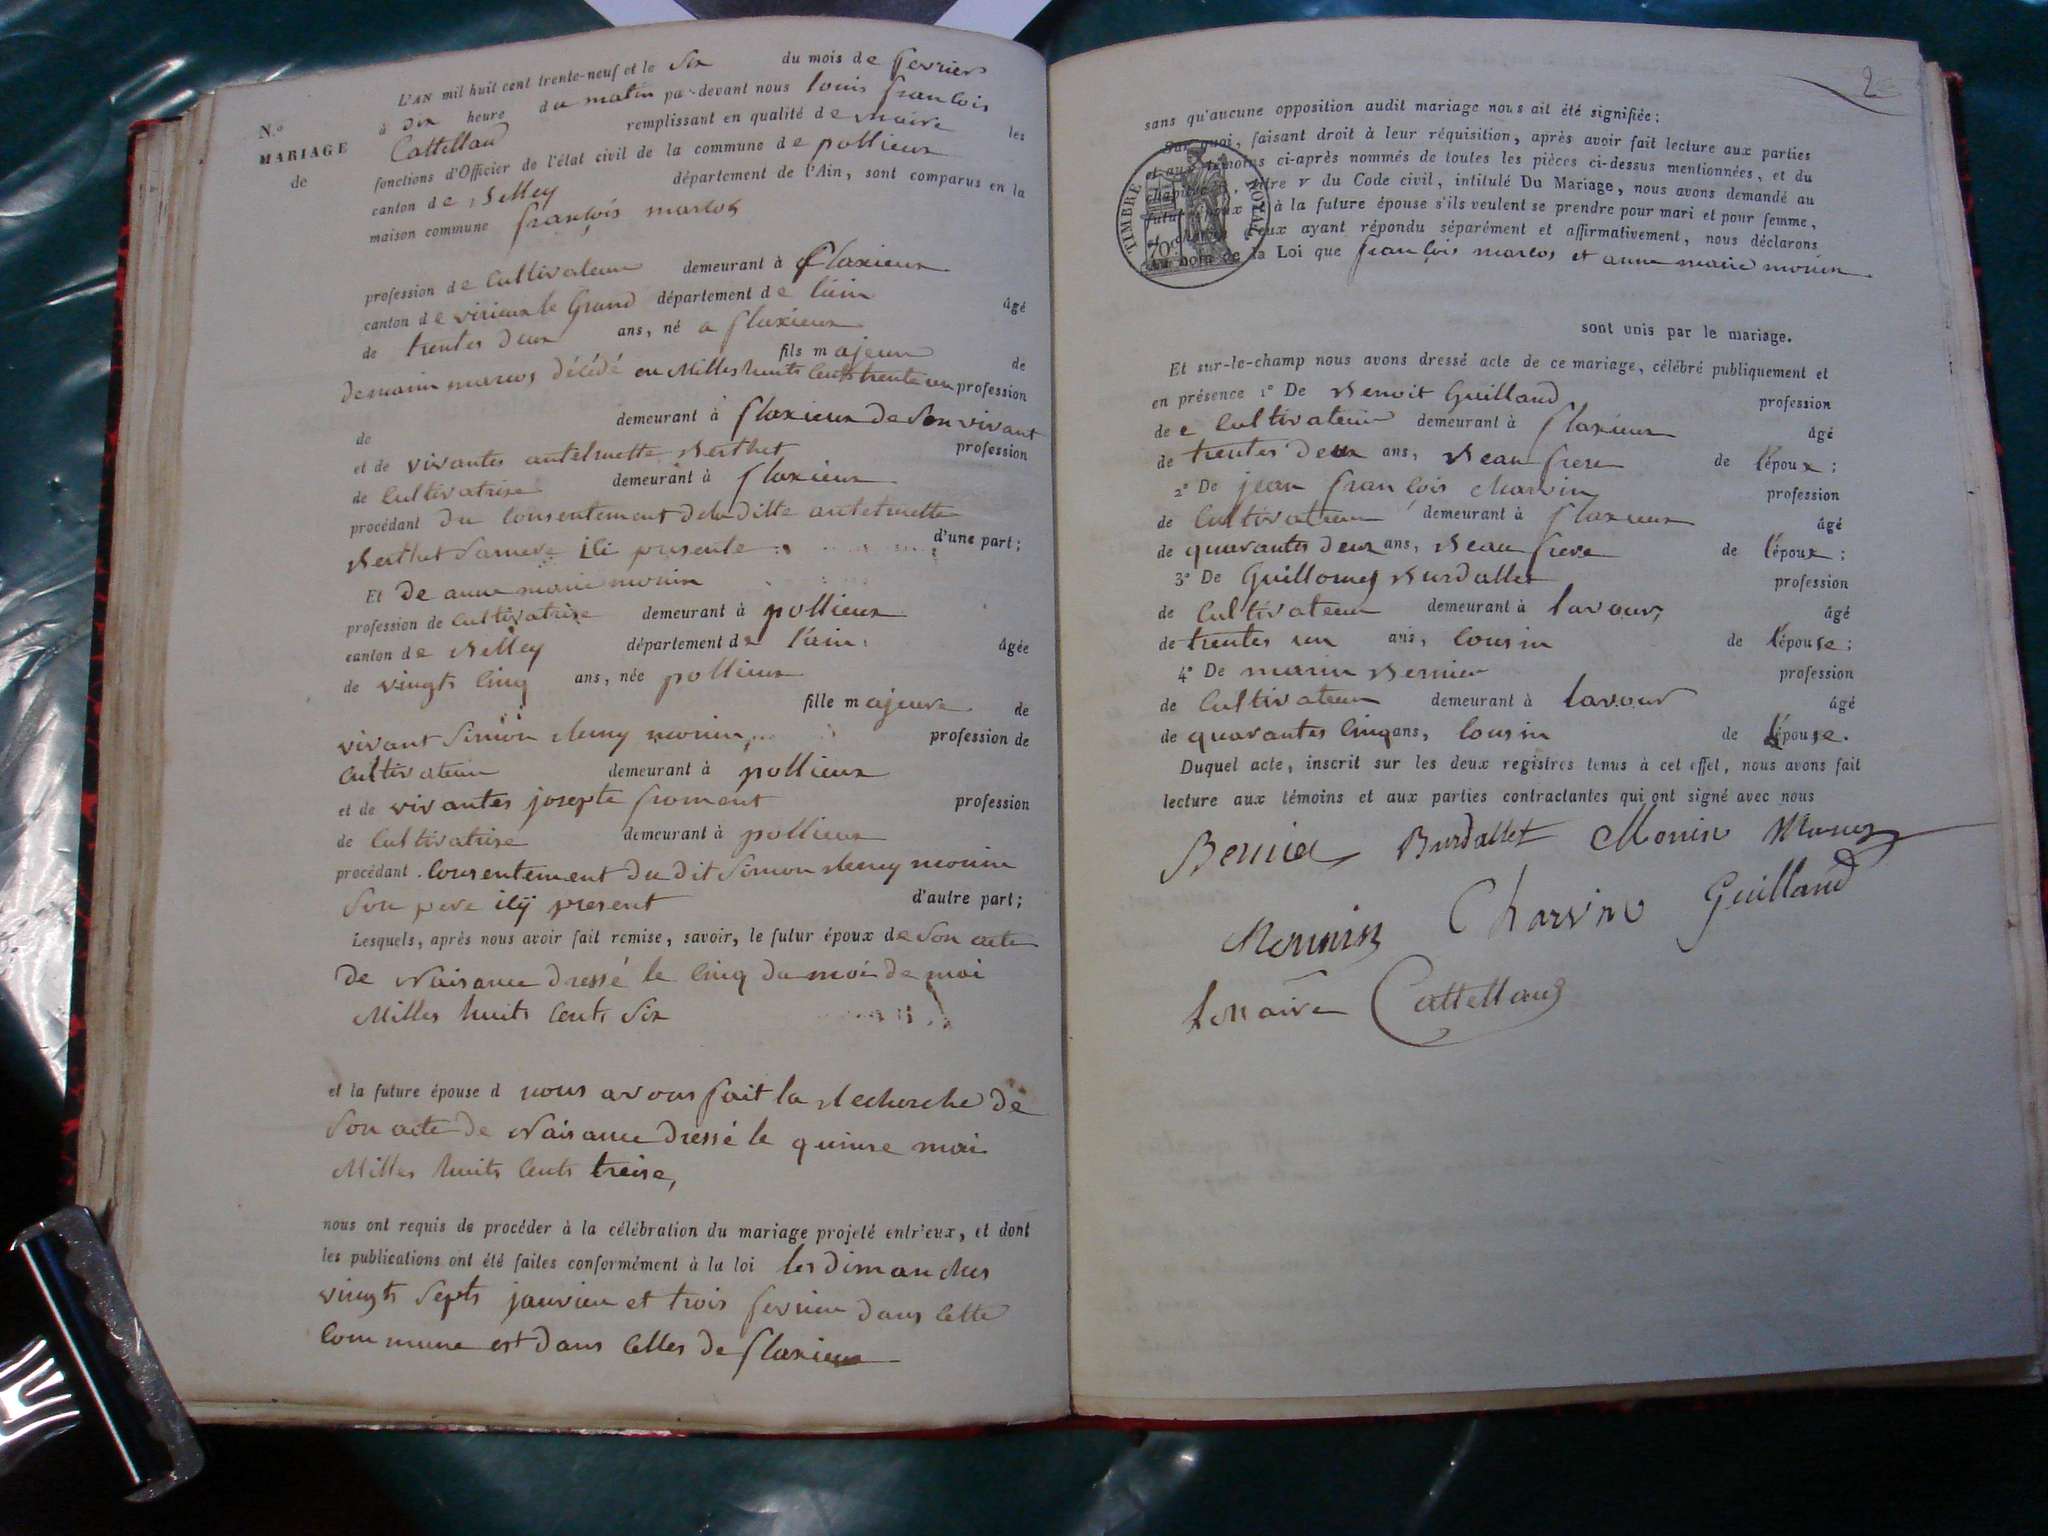 N.º
MARIAGE
de
L'AN mil huit cent trente-neuf et le Six du mois de fevrier
à dix heure du matin par-devant nous louis françois
Cattelland remplissant en qualité de maire les
fonctions d'Officier de l'état civil de la commune de pollieux
canton de Belley département de l'Ain, sont comparus en la
maison commune françois marcoz
profession de Cultivateur demeurant à flaxieux
canton de virieux le Grand département de l'ain âgé
de trentes deux ans, né a flaxieux
fils majeur de
de marin marcos décédé en Milles huits Cents trente un profession
de demeurant à flaxieux de Son vivant
et de vivantes antelmette Berthet profession
de Cultivatrise demeurant à flaxieux
procédant du Consentement de la ditte antelmette
Berthet Samere ici presente d'une part;
Et De anne marie monin
profession de Cultivatrise demeurant à pollieux
canton de Belley département de l'ain. âgée
de vingts Cinq ans, née pollieux
fille majeure de
vivant Simon Remy monin profession de
Cultivateur demeurant à pollieux
et de vivantes josepte froment profession
de Cultivatrise demeurant à pollieux
procédant Consentement du dit Simon Remy monin
Son pere icÿ present d'autre part;
Lesquels, après nous avoir fait remise, savoir, le futur époux de Son acte
de Naisance dressé le Cinq du moi de mai
Milles huits Cents Six
et la future épouse d nous avons fait la Recherche de
Son acte de Naisance dressé le quinse mai
Milles huits Cents treise,
nous ont requis de procéder à la célébration du mariage projeté entr'eux, et dont
les publications ont été faites conformément à la loi les dimanches
vingts Septs janvier et trois fevrier dans Cette
Commune est dans Celles de flaxieux
2
sans qu'aucune opposition audit mariage nous ait été signifiée:
Sur quoi, faisant droit à leur réquisition, après avoir fait lecture aux parties
et aux témoins ci-après nommés de toutes les pièces ci-dessus mentionnées, et du
chapitre titre V du Code civil, intitulé Du Mariage, nous avons demandé au
futur époux et à la future épouse s'ils veulent se prendre pour mari et pour femme,
et chacun d'eux ayant répondu séparément et affirmativement, nous déclarons
au nom de la Loi que françois marcos et anne marie monin
TIMBRE ROYAL
70c
sont unis par le mariage.
Et sur-le-champ nous avons dressé acte de ce mariage, célébré publiquement et
en présence 1º De Benoit Guilland profession
de e Cultivateur demeurant à flaxieux âgé
de trentes deux ans, Beau frere de l'époux;
2º De jean françois charvin profession
de Cultivateur demeurant à flaxieux âgé
de quarantes deux ans, Beau frere de l'époux;
3º De Guillomes Burdallet profession
de Cultivateur demeurant à lavours âgé
de trentes un ans, Cousin de l'épouse;
4º De marin Bernier profession
de Cultivateur demeurant à lavour âgé
de quarantes Cinq ans, Cousin de l'épouse.
Duquel acte, inscrit sur les deux registres tenus à cet effet, nous avons fait
lecture aux témoins et aux parties contractantes qui ont signé avec nous
Bernier Burdallet Monin Marcoz
Mounin Charvin Guilland
le maire Cattelland